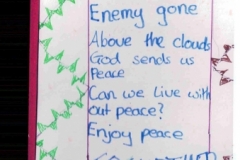 Enemy gone
Above the clouds
God sends us
Peace
Can we live with
out peace?
Enjoy peace